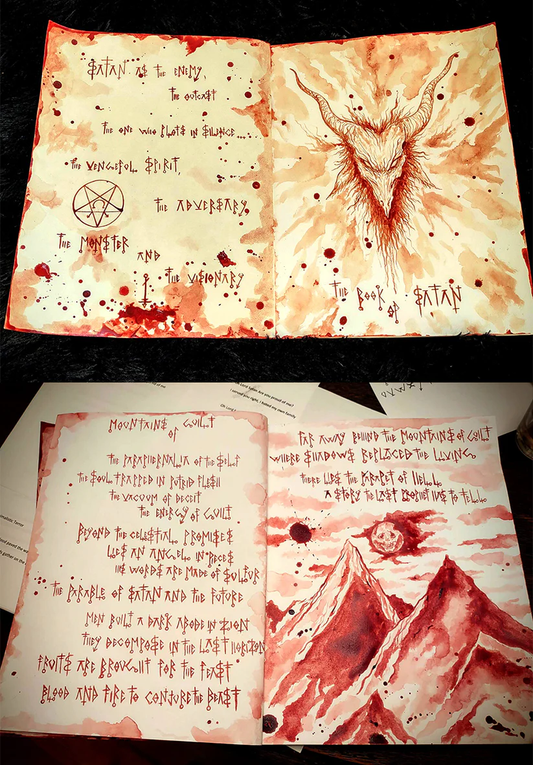 SATAN AS THE ENEMY,
THE OUTCAST
THE ONE WHO PLOTS IN SILENCE...
THE VENGEFUL SPIRIT,
THE ADVERSARY,
THE MONSTER
AND
THE VISIONARY
THE BOOK
OF SATAN
MOUNTAINS OF GUILT
THE PARAPHERNALIA OF THE SELF
THE SOUL TRAPPED IN PUTRID FLESH
THE VACUUM OF DECEIT
THE ENERGY OF GUILT
BEYOND THE CELESTIAL PROMISES
LIES AN ANGEL IN PIECES
HIS WORDS ARE MADE OF SULFUR
THE PARABLE OF SATAN AND THE FUTURE
MEN BUILT A DARK ABODE IN ZION
THEY DECOMPOSE IN THE LAST HORIZON
FRUITS ARE BROUGHT FOR THE FEAST
BLOOD AND FIRE TO CONJURE THE BEAST
FAR AWAY BEHIND THE MOUNTAINS OF GUILT
WHERE SHADOWS REPLACED THE LIVING
THERE LIES THE PARAPET OF HELL
A STORY THE LAST PROPHET HAS TO TELL